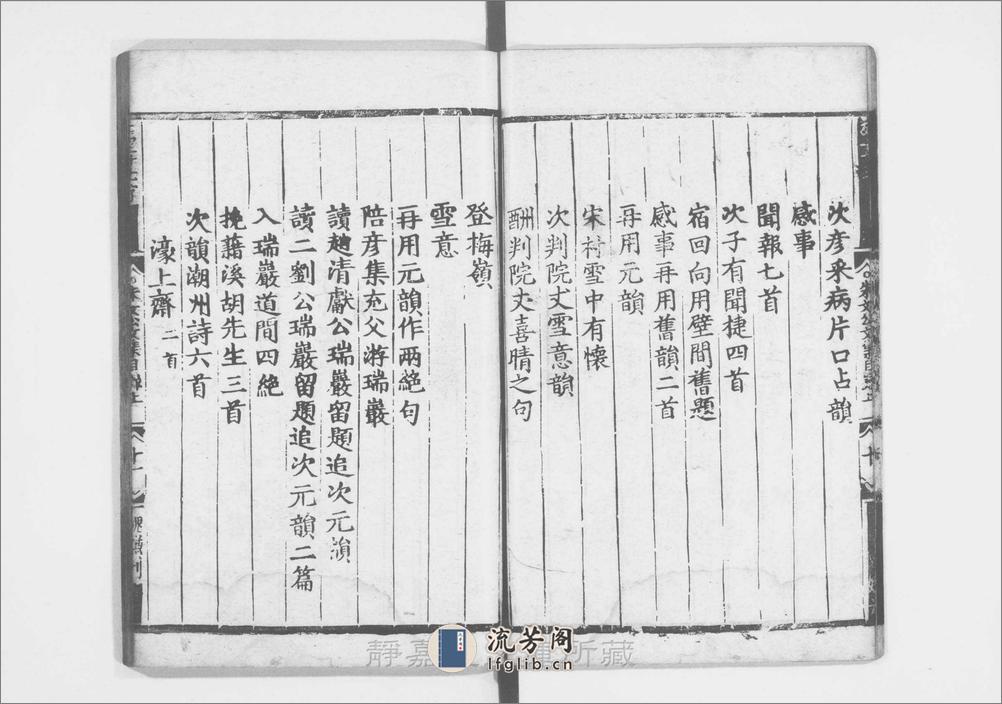 次彦采病片口占韻
感事
聞報七首
次子有聞捷四首
宿回向用壁間舊題
感事再用舊韻二首
再用元韻
宋村雪中有懷
次判院丈雪意韻
酬判院丈喜晴之句
登梅嶺
雪意
再用元韻作兩絕句
陪彦集充父游瑞巖
讀趙清獻公瑞巖留題追次元韻
讀二劉公瑞巖留題追次元韻二篇
入瑞巖道間四絶
挽籍溪胡先生三首
次韻潮州詩六首
濠上齋 二首
十
十一
流芳阁
lfglib.cn
靜嘉 所藏